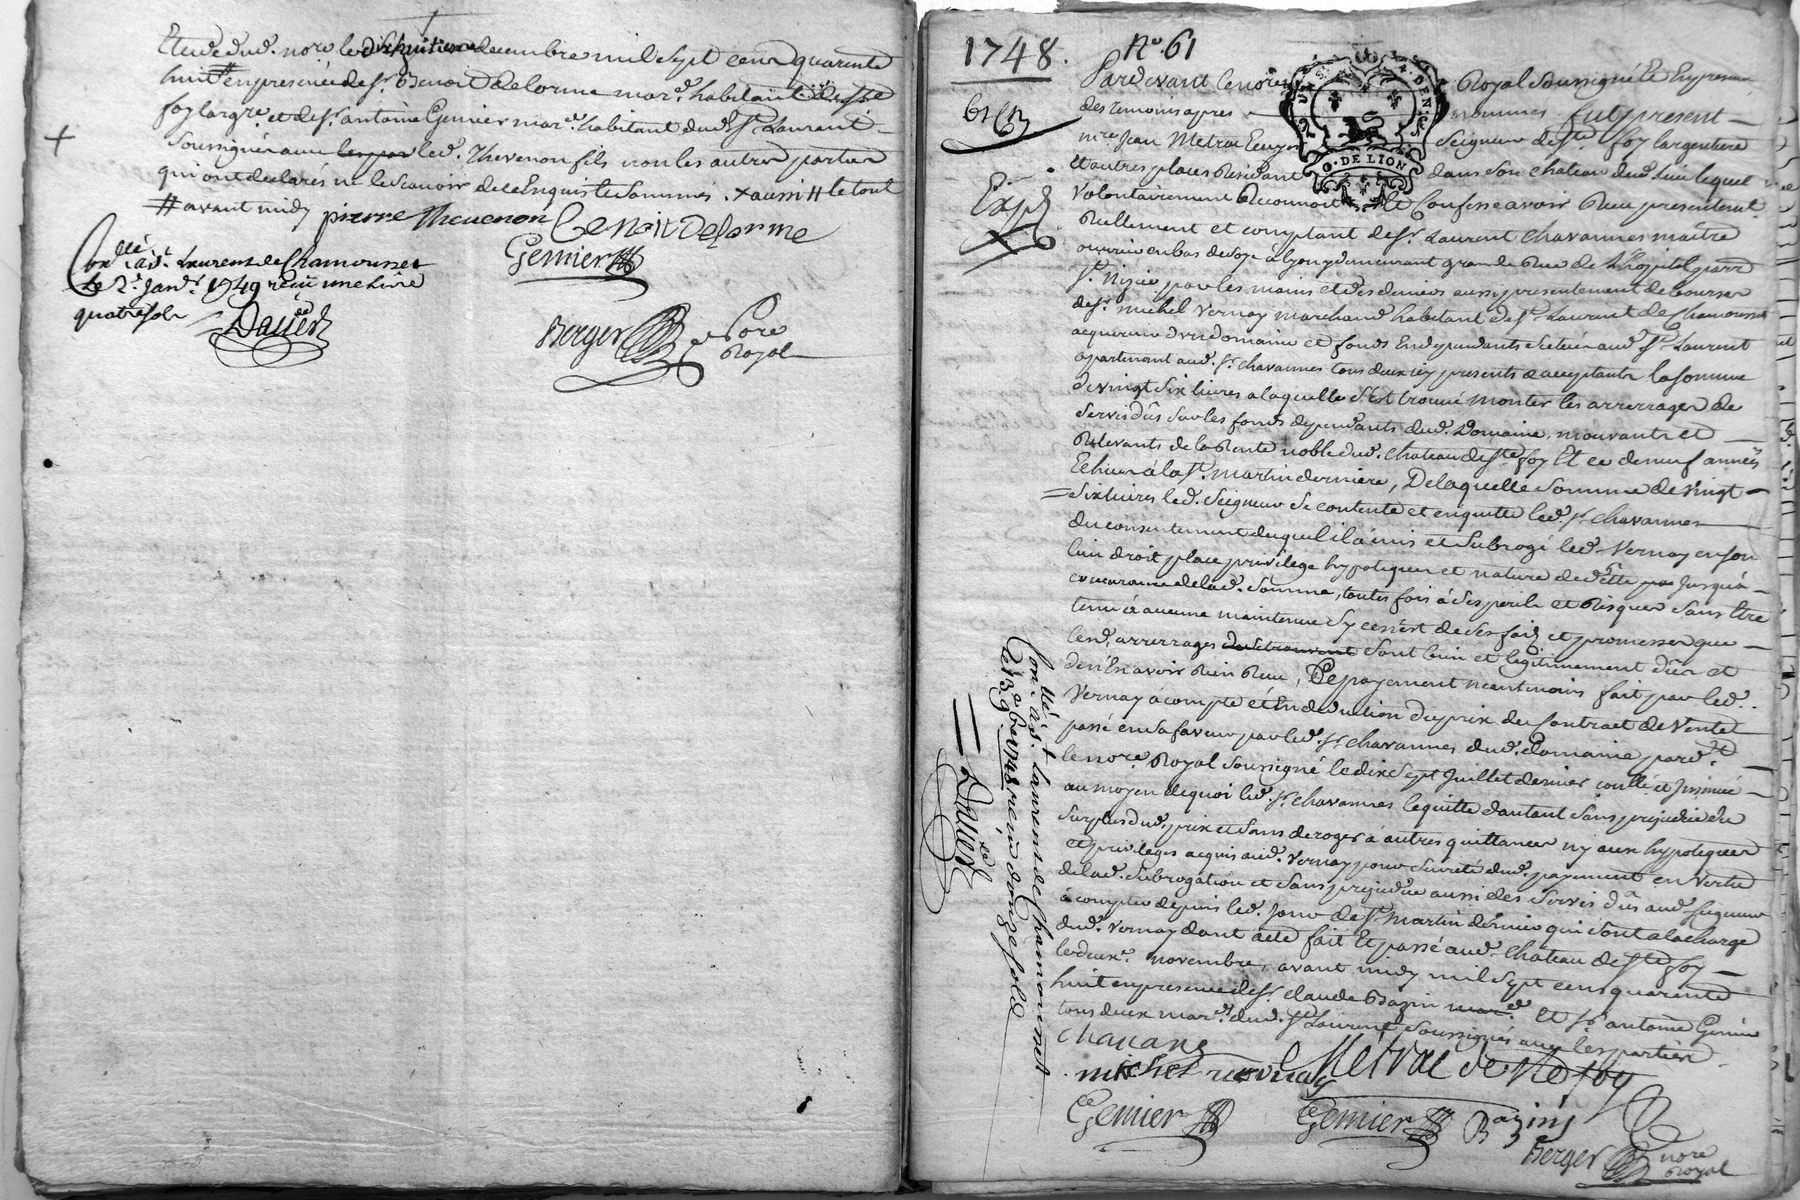 Etude dud. nore le dixhuitieme decembre mil sept cent quarente
huit en presence de sr. Benoit Delorme mard. habitant de ste
foy largre. et de sr. antoine Gemier mard. habitant dud. st. Laurent
soussignés avec led. Thevenon fils non les autres parties
qui ont declarés ne le scavoir de ce Enquis et sommés . x aussi // le tout
// avant midy pierre Theuenon Benoit Delorme
Gemier
Conllé. à st. Laurent de Chamousset
le 2e. janr. 1749 reçu une livre
quatre sols Dauer
Berger nore Royal
1748. No. 61
61
Expé
Pardevant le nore Royal soussigné et En presence
des temoins apres nommés fut present
mre. Jean Metrac Ecuyer Seigneur de ste. foy largentiere
et autres places Residant dans son chateau dud. lieu lequel
volontairement Reconnoit et Confesse avoir Reçu presentemt.
Reellement et comptant de sr. Laurent chavannes maitre
ouvrier en bas de soye à lyon y demeurant grande Rue de L'hopital parr.
st. Nizier par les mains et des deniers aussy presentement debourser
de sr. michel Vernay marchand habitant de st. Laurent de Chamousset
acquereur d'un domaine et fonds En dependants scitués aud. st. Laurent
apartenant aud. sr. chavannes tous deux icy presents et acceptants la somme
de vingt six livres a laquelle s'est trouvé monter les arrerages de
servis dûs sur les fonds dependants dud. Domaine, mouvants et
Relevants de la Rente noble dud. chateau de ste. foy Et ce de neuf années
Echues à la st. martin derniere, De laquelle somme de vingt
six livres led. Seigneur se contente et en quitte led. sr. chavannes
du consentement duquel il a mis et subrogé led. Vernay en son
lieu droit place privilege hypoteques et nature de dette jusqu'à
concurance de lad. somme, toutes fois à ses perils et Risques sans Etre
tenu à aucune maintenue sy ce n'est de ses faits et promesses que
lesd. arrerages sont bien et legitimement dûs et
de n'En avoir Rien Reçu, Le payement neantmoins fait par led.
Vernay a compte et En deduction du prix du contract de Vente
passé en sa faveur par led. sr. chavannes dud. domaine pard.t
le nore. Royal soussigné le dix sept Juillet dernier conllé et Jnsinué
au moyen de quoi led. sr. chavannes le quitte d'autant sans prejudice du
surplus dud. prix et sans deroger à autres quittances ny aux hypoteques
et privileges acquis aud. Vernay pour sureté dud. payement en vertu
de lad. subrogation et sans prejudice aussi des servis dûs aud. seigneur
à compter depuis led. jour de st. martin dernier qui sont a la charge
dud. Vernay dont acte fait Et passé aud. chateau de ste foy
le deuxe. novembre, avant midy mil sept cens quarente
huit en presence de sr. claude Bazin Et sr. antoine Gemier
tous deux mards. dud. st. Laurent soussignés avec les parties
chauane
michel uernay Métrac de Ste foy
Gemier Gemier Bazin
Berger nore Royal
Conllé. à st. Laurent de Chamousset
le 13e 9bre 1748 reçu douze sols
Dauer